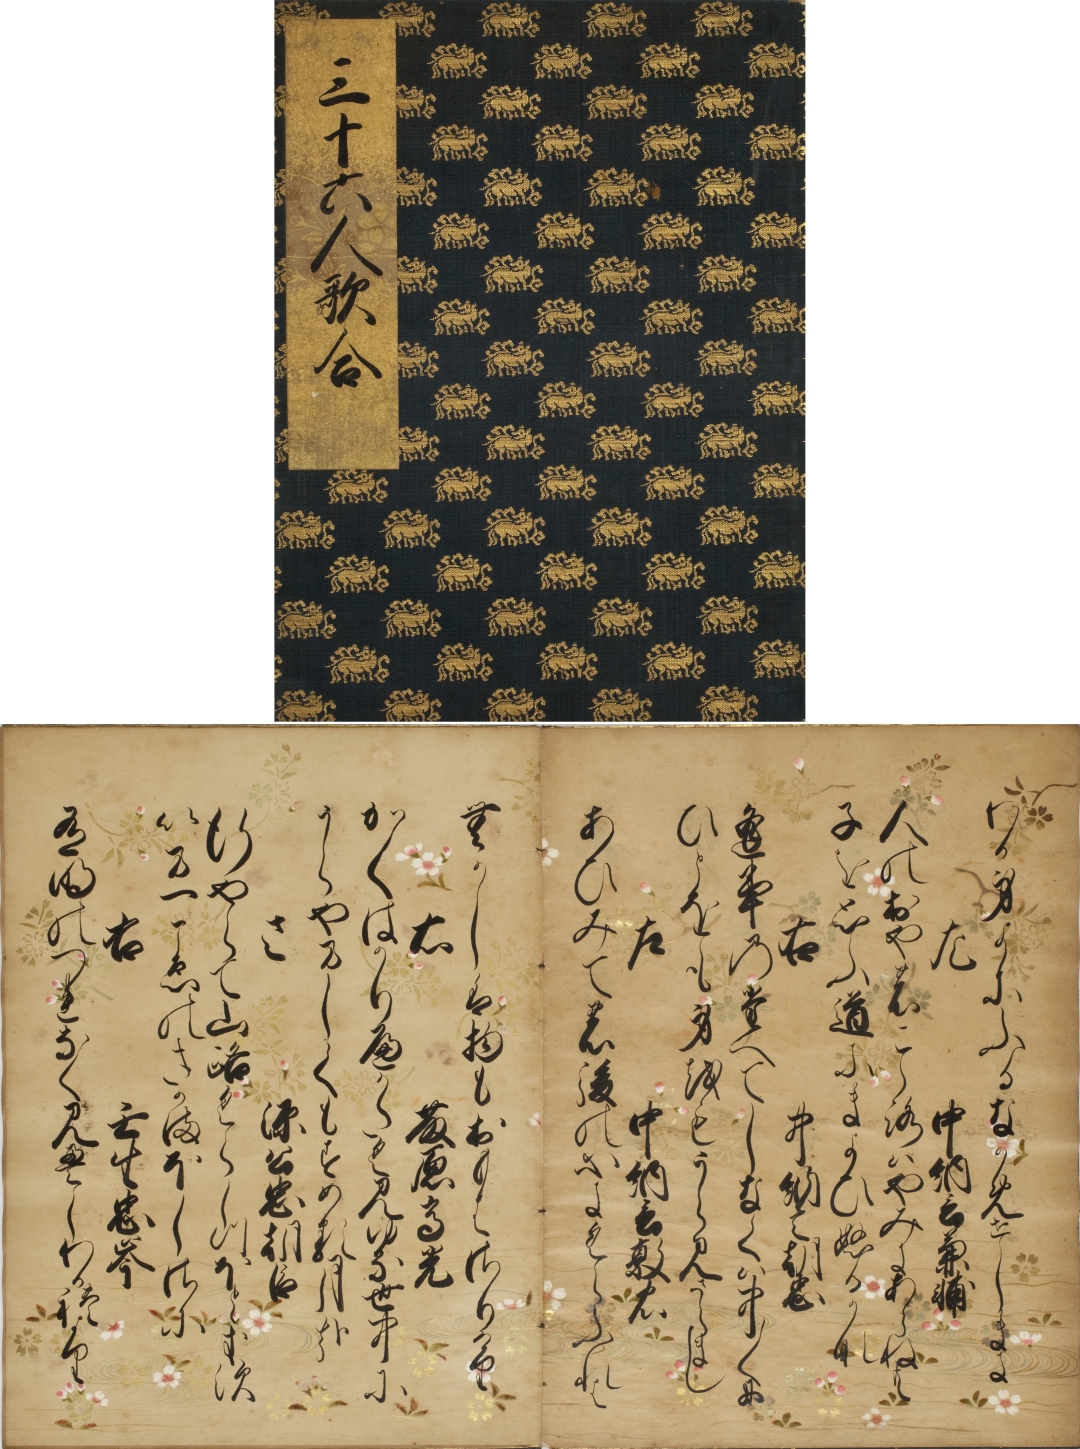 三十六人歌合
わか身よにふるなかめせしまに
左　中納言兼輔
人のおやのこゝろはやみにあらねとも
子をおもふ道にまよひぬるかな
右　中納言朝忠
逢事の堂えてしなくは中々に
ひとをも身をもうらみさらまし
左　中納言敦忠
あひみての後の心にくらふれは
昔は物もおもはさりけり
右　藤原高光
かくはかりへかたくみゆる世中に
うらやましくもすめる月かな
左　源公忠朝臣
行やらて山路くらしつほとゝきす
いま一こゑのきかまほしさに
右　壬生忠岑
有明のつれなく見えしわかれより